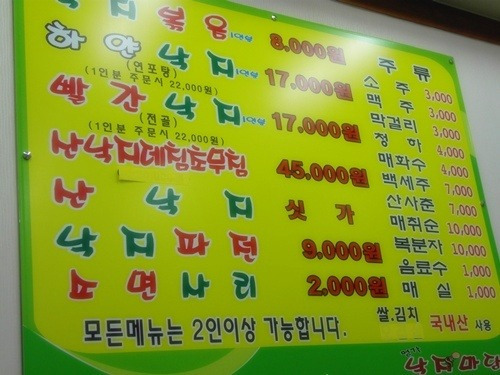 낙지볶음 1인분 8.000원
하얀낙지 1인분 17.000원
(연포탕)
(1인분 주문시 22,000원)
빨간낙지 1인분 17.000원
(전골)
(1인분 주문시 22,000원)
45.000원
산낙지 싯가
낙지파전 9.000원
소면사리 2.000원
모든메뉴는 2인이상 가능합니다.
주류
소주 3,000
맥주 3,000
막걸리 3,000
청하 4,000
매화수 4,000
백세주 7,000
산사춘 7,000
매취순 10,000
복분자 10,000
음료수 1,000
매실 1,000
쌀.김치 국내산 사용
낙지마당